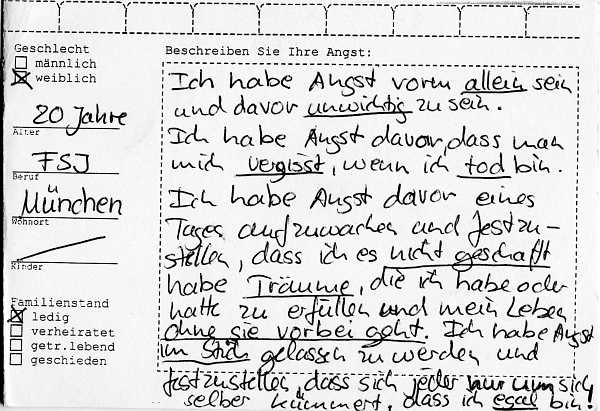 Geschlecht
männlich
weiblich
20 Jahre
Alter
FSJ
Beruf
München
Wohnort
Kinder
Familienstand
ledig
verheiratet
getr.lebend
geschieden
Beschreiben Sie Ihre Angst:
Ich habe Angst vorm allein sein
und davor unwichtig zu sein.
Ich habe Angst davor, dass man
mich vergisst, wenn ich tod bin.
Ich habe Angst davor eines
Tages aufzuwachen und festzu-
stellen, dass ich es nicht geschafft
habe Träume, die ich habe oder
hatte zu erfüllen und mein Leben
ohne sie vorbei geht. Ich habe Angst
im Stich gelassen zu werden und
festzustellen, dass sich jeder nur um sich
selber kümmert, dass ich egal bin!